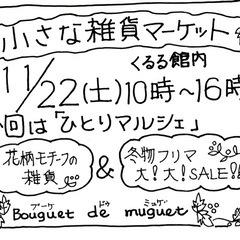 小さな雑貨マーケット
くるる館内
11/22(土)10時～16時
今回は「ひとりマルシェ」
花柄モチーフの
雑貨
&
冬物フリマ
大!大!SALE!!
ブーケ ドゥ ミュゲ
Bouguet de muguet